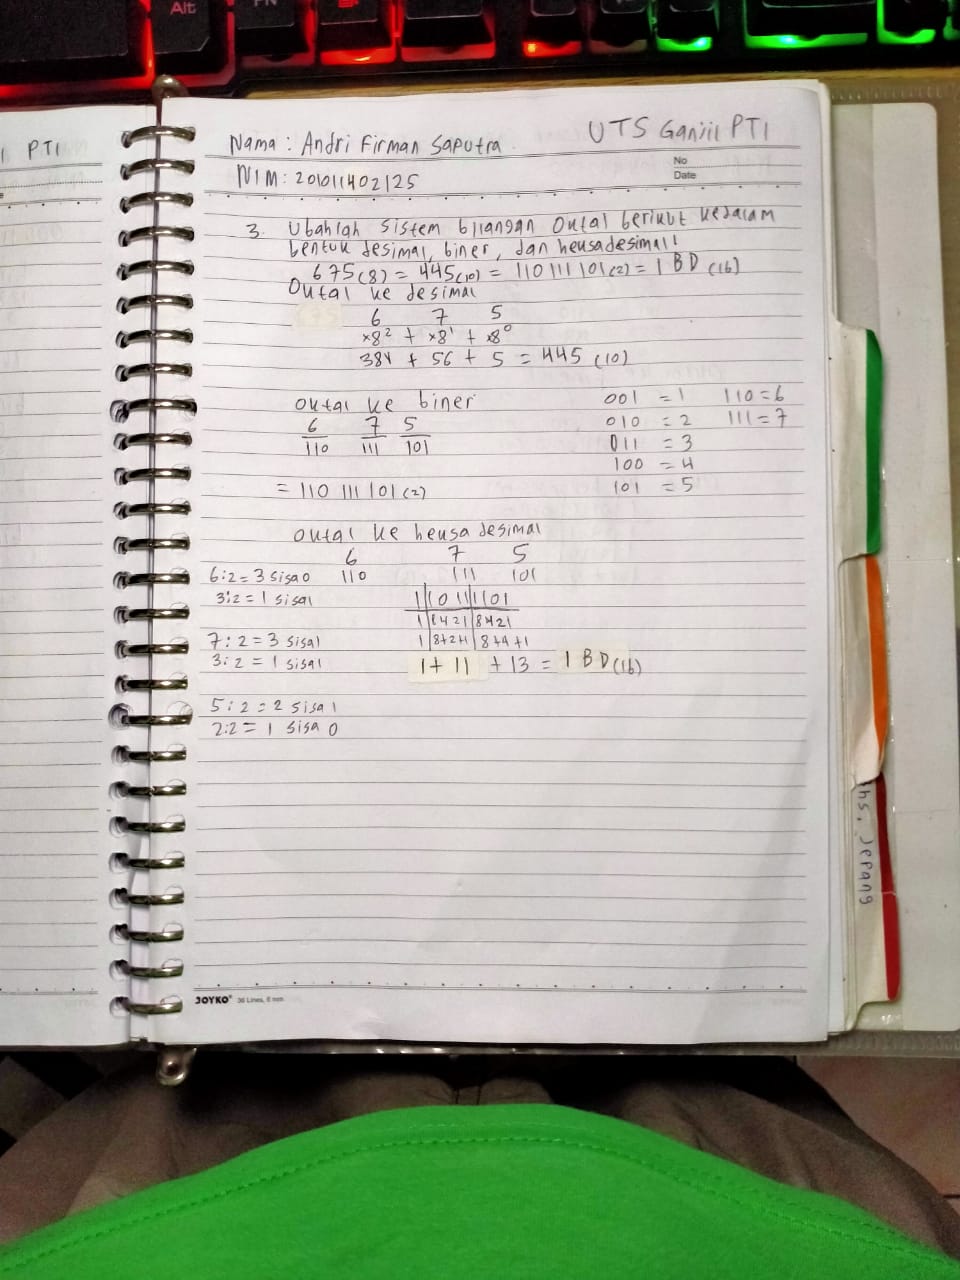 Alt
FN
PTI
Nama : Andri Firman Saputra
UTS Ganjil PTI
NIM : 201011402125
No
Date
3. Ubahlah sistem bilangan Oktal berikut kedalam
bentuk desimal, biner, dan heksadesimal!
675(8) = 445(10) = 110 111 101(2) = 1 BD (16)
Oktal ke desimal
6 7 5
×8² + ×8¹ + ×8⁰
384 + 56 + 5 = 445 (10)
oktal ke biner
6 7 5
110 111 101
= 110 111 101(2)
001 = 1 110 = 6
010 = 2 111 = 7
011 = 3
100 = 4
101 = 5
oktal ke heksa desimal
6 7 5
6:2 = 3 sisa 0 110 111 101
3:2 = 1 sisa 1 1|1011|1101
1|8421|8421
7:2 = 3 sisa 1 1|8+2+1|8+4+1
3:2 = 1 sisa 1 1 + 11 + 13 = 1 BD (16)
5:2 = 2 sisa 1
2:2 = 1 sisa 0
JOYKO 36 Lines, 8 mm
Jepang